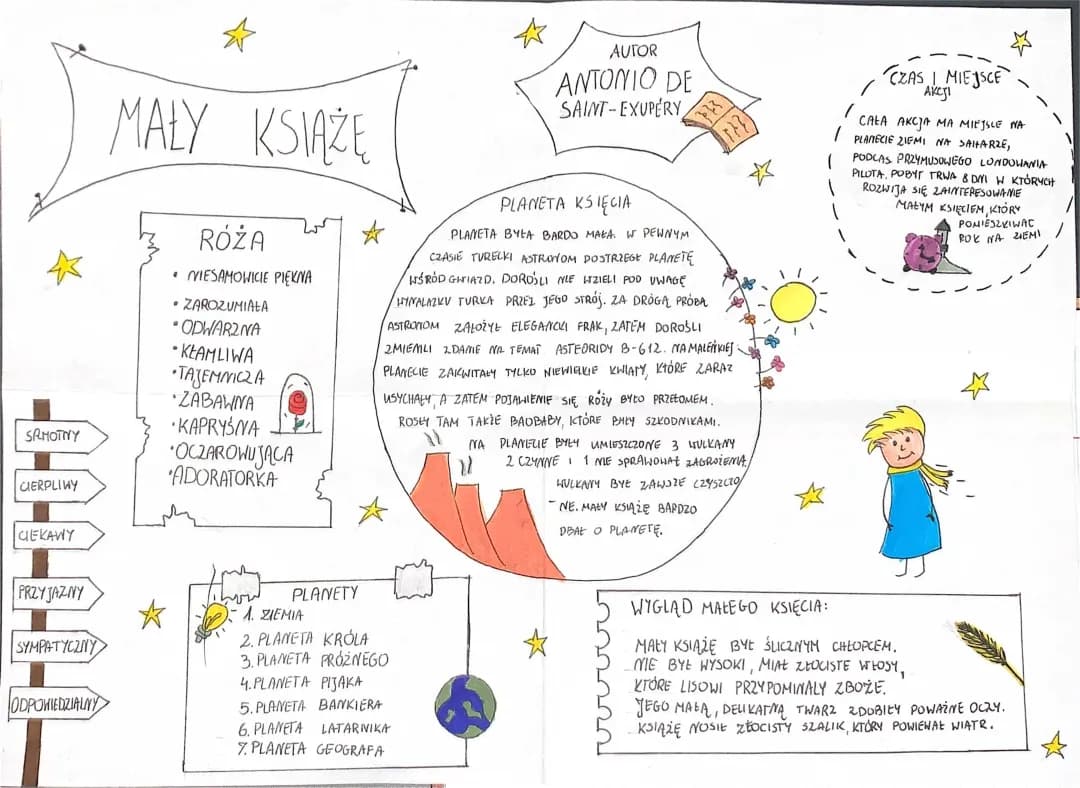 MAŁY KSIĄŻĘ
AUTOR
ANTONIO DE
SAINT-EXUPÉRY
CZAS I MIEJSCE
AKCJI
CAŁA AKCJA MA MIEJSCE NA
PLANECIE ZIEMI NA SAHARZE,
PODCZAS PRZYMUSOWEGO LONDOWANIA
PILOTA. POBYT TRWA 8 DNI W KTÓRYCH
ROZWIJA SIĘ ZAINTERESOWANIE
MAŁYM KSIĘCIEM, KTÓRY
POMIESZKIWAĆ
ROK NA ZIEMI
RÓŻA
• NIESAMOWICIE PIĘKNA
• ZAROZUMIAŁA
• ODWARZNA
• KŁAMLIWA
• TAJEMNICZA
• ZABAWNA
• KAPRYŚNA
• OCZAROWUJĄCA
• ADORATORKA
PLANETA KSIĘCIA
PLANETA BYŁA BARDO MAŁA. W PEWNYM
CZASIE TURECKI ASTRONOM DOSTRZEGŁ PLANETĘ
WŚRÓD GWIAZD. DOROŚLI NIE WZIELI POD UWAGĘ
WYNALAZKU TURKA PRZEZ JEGO STRÓJ. ZA DRÓGĄ PRÓBĄ
ASTRONOM ZAŁOŻYŁ ELEGANCKI FRAK, ZATEM DOROŚLI
ZMIENILI ZDANIE NA TEMAT ASTEORIDY B-612. NA MALEŃKIEJ
PLANECIE ZAKWITAŁY TYLKO NIEWIELKIE KWIATY, KTÓRE ZARAZ
USYCHAŁY, A ZATEM POJAWIENIE SIĘ RÓŻY BYŁO PRZEŁOMEM.
ROSŁY TAM TAKŻE BAOBABY, KTÓRE BYŁY SZKODNIKAMI.
NA PLANECIE BYŁY UMIESZCZONE 3 WULKANY
2 CZYNNE I 1 NIE SPRAWOWAŁ ZAGROŻENIA.
WULKANY BYŁ ZAWSZE CZYSZCZO
- NE. MAŁY KSIĄŻĘ BARDZO
DBAŁ O PLANETĘ.
SAMOTNY
CIERPLIWY
CIEKAWY
PRZYJAZNY
SYMPATYCZNY
ODPOWIEDZIALNY
PLANETY
1. ZIEMIA
2. PLANETA KRÓLA
3. PLANETA PRÓŻNEGO
4. PLANETA PIJAKA
5. PLANETA BANKIERA
6. PLANETA LATARNIKA
7. PLANETA GEOGRAFA
WYGLĄD MAŁEGO KSIĘCIA:
MAŁY KSIĄŻĘ BYŁ ŚLICZNYM CHŁOPCEM.
NIE BYŁ WYSOKI, MIAŁ ZŁOCISTE WŁOSY,
KTÓRE LISOWI PRZYPOMINAŁY ZBOŻE.
JEGO MAŁĄ, DELIKATNĄ TWARZ ZDOBIŁY POWAŻNE OCZY.
KSIĄŻĘ NOSIŁ ZŁOCISTY SZALIK, KTÓRY POWIEWAŁ WIATR.